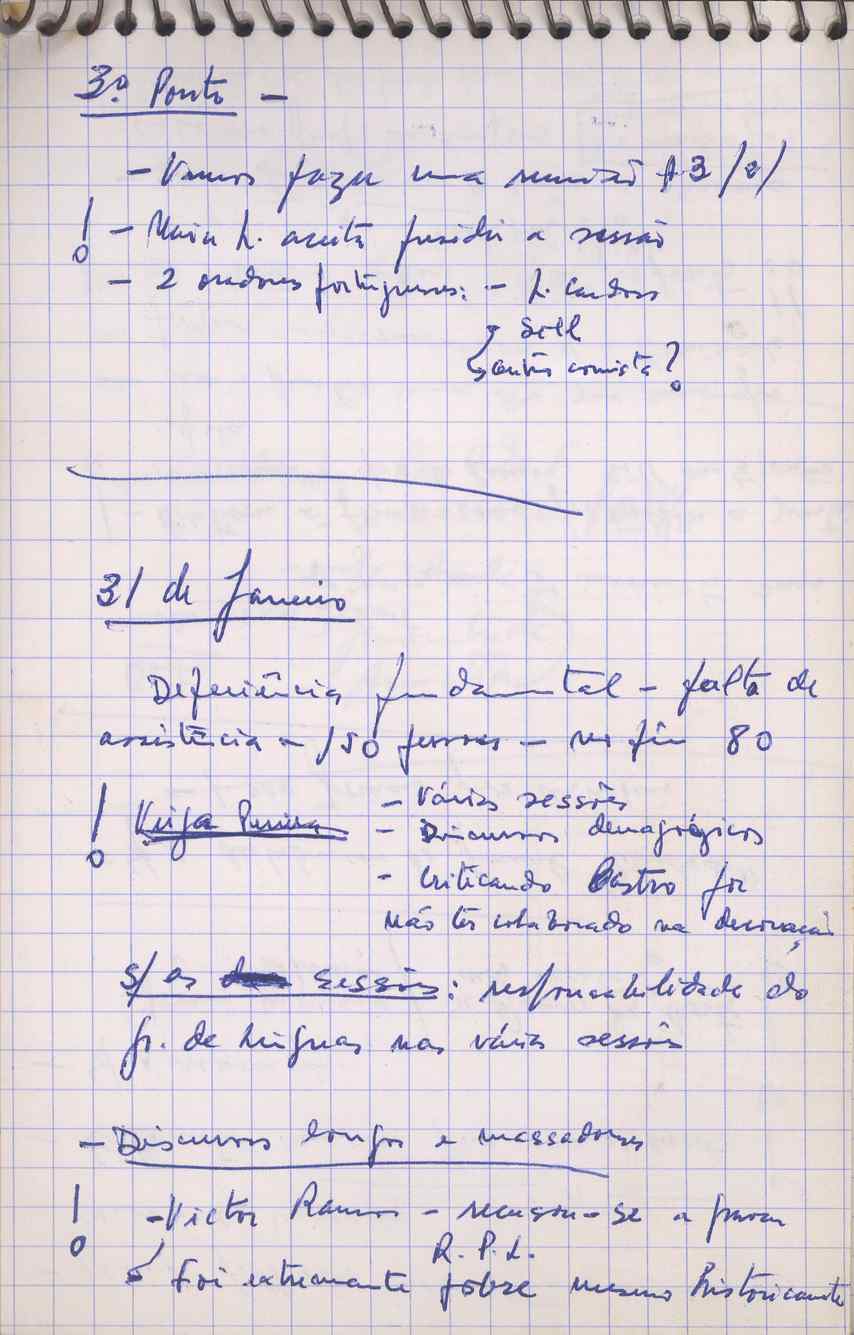 3º Ponto -
- Vamos fazer uma reunião 13/2/
! - Maria L. aceita presidir a sessão
- 2 oradores portugueses: - L. Cardoso
Sell
outro comista?
31 de Janeiro
Deficiência fundamental - falta de
assistência - 150 pessoas - no fim 80
! Veiga Pereira - Várias sessões
- Discursos demagógicos
- Criticando Castro por
não ter colaborado na decoração
s/ as sessões: responsabilidade do
gr. de Línguas nas várias sessões
- Discursos longos e massadores
! - Victor Ramos - recusou-se a parar
R. P. L.
Foi extremamente pobre mesmo historicamente